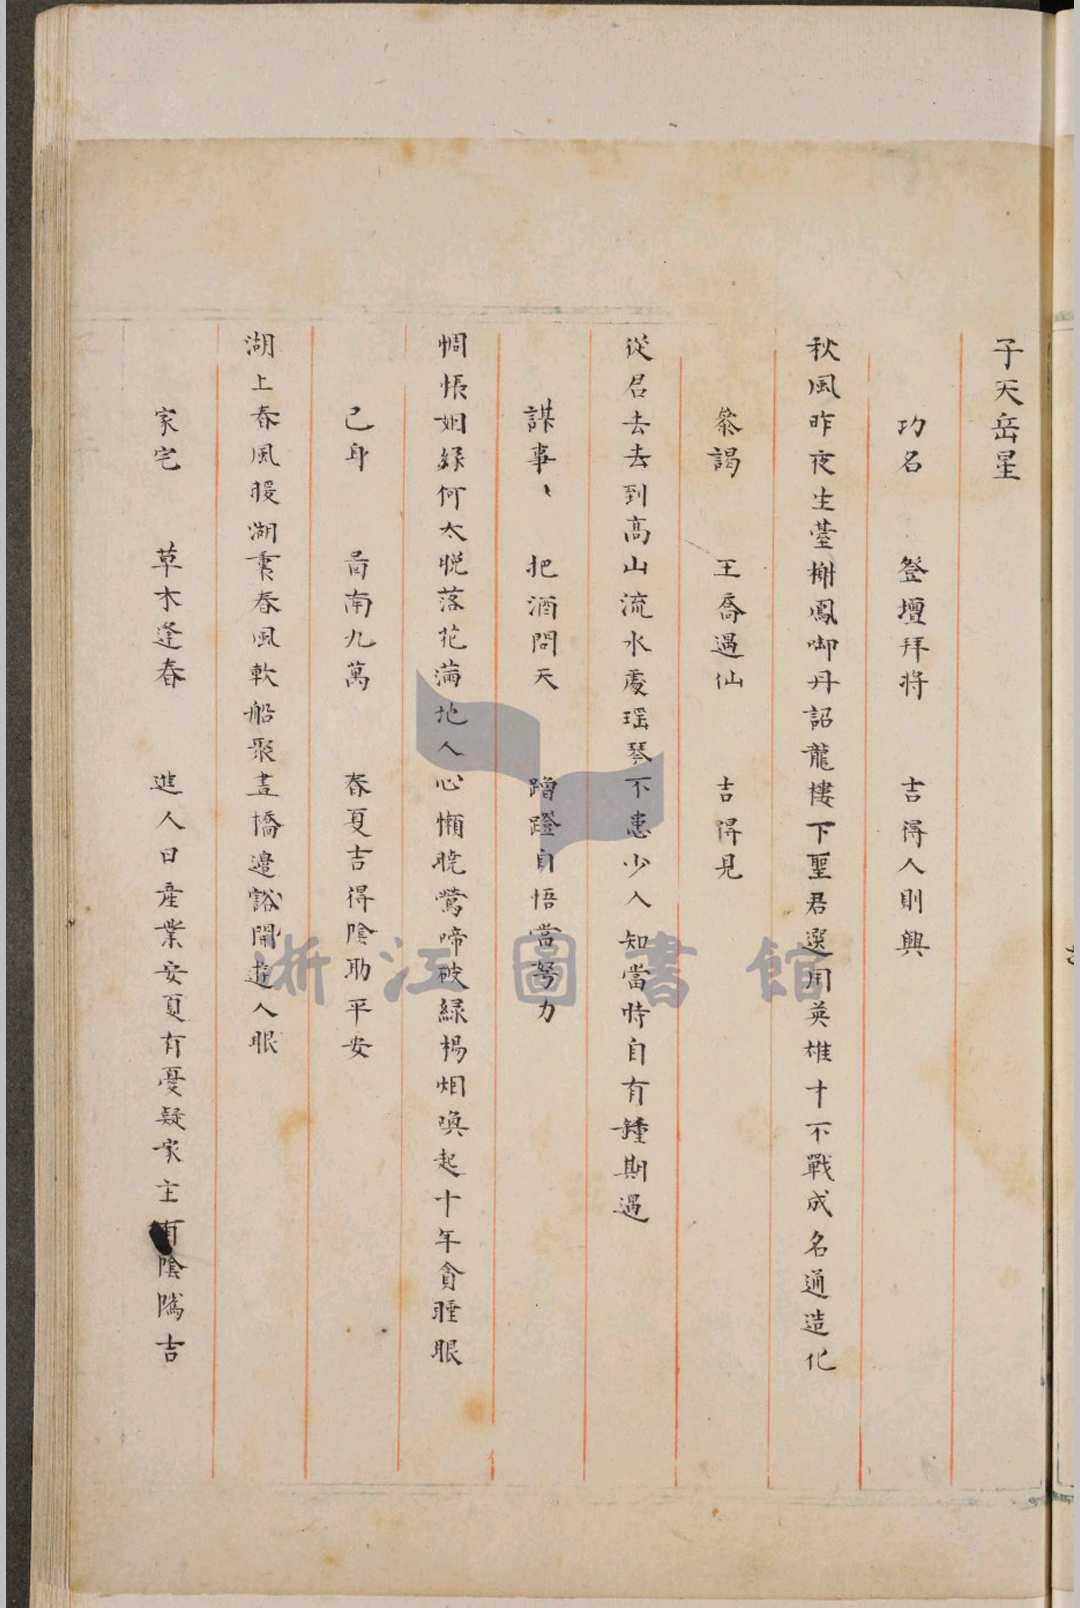 子天岳星
功名 登壇拜將 吉得人則興
秋風昨夜生臺榭鳳啣丹詔龍樓下聖君選用英雄十不戰成名通造化
叅謁 王喬遇仙 吉得見
從君去去到高山流水處瑶琴不患少人知當時自有鍾期遇
謀事、 把酒問天 蹭蹬自悟當努力
惆悵姻緣何太晚落花滿地人心懶曉鶯啼破綠楊烟喚起十年貪睡眼
己身 啚南九萬 春夏吉得陰助平安
湖上春風暖湖裏春風軟船聚畫橋邊豁開遊人眼
家宅 草木逢春 進人口產業安夏有憂疑家主有陰隲吉
浙江圖書館